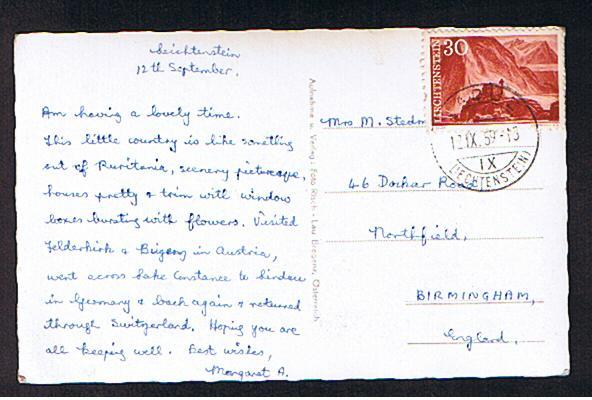 Liechtenstein
12th September.
Am having a lovely time.
This little country is like something
out of Ruritania, scenery picturesque,
houses pretty & trim with window
boxes bursting with flowers. Visited
Felderkirk & Brigenz in Austria,
went across Lake Constance to Lindau
in Germany & back again & returned
through Switzerland. Hoping you are
all keeping well. Best wishes,
Margaret A.
Aufnahme u. Verlag - Foto Risch-Lau Bregenz, Österreich
Mrs M. Stedm
46 Dochar Road
Northfield,
BIRMINGHAM,
England.
30
LIECHTENSTEIN
12.IX.59-15
IX
(LIECHTENSTEIN)